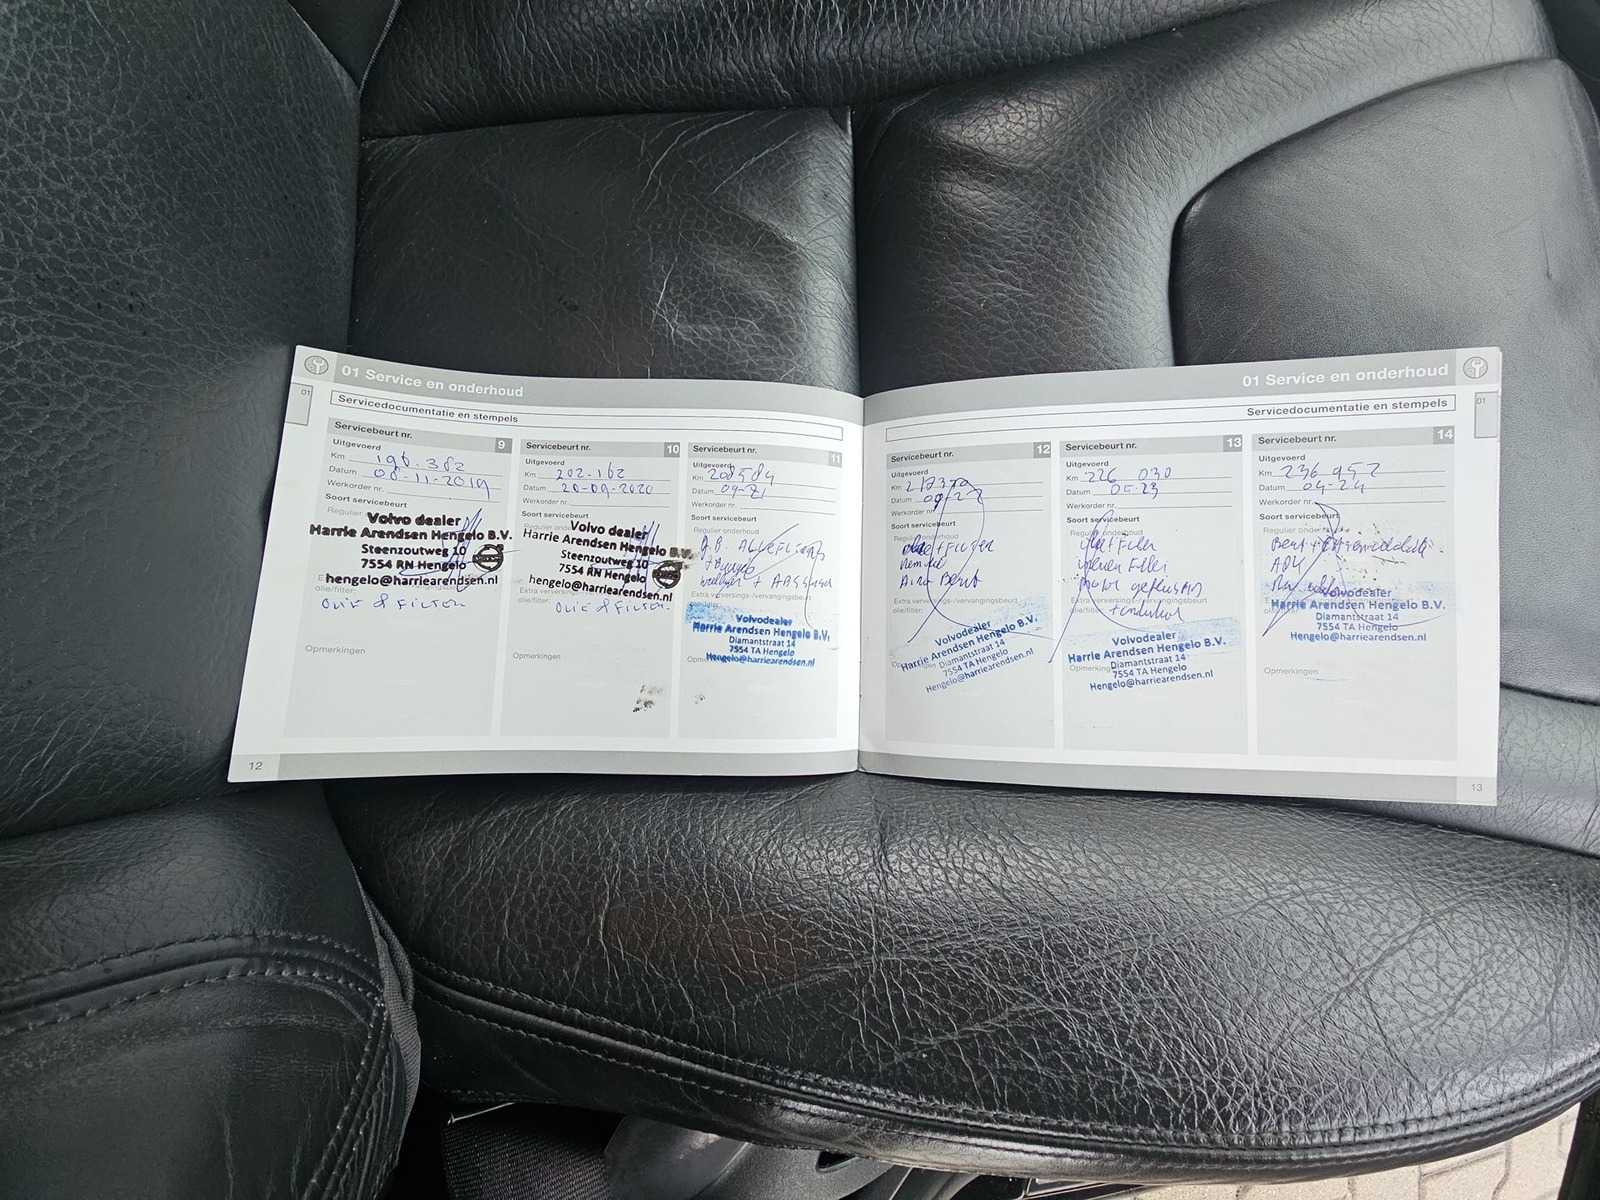 01 Service en onderhoud
01
Servicedocumentatie en stempels
Servicebeurt nr. 9
Uitgevoerd
Km 196.382
Datum 08-11-2019
Werkorder nr.
Soort servicebeurt
Regulier
Volvo dealer
Harrie Arendsen Hengelo B.V.
Steenzoutweg 10
7554 RN Hengelo
hengelo@harriearendsen.nl
olie/filter:
OLIE & FILTER
Opmerkingen
12
Servicebeurt nr. 10
Uitgevoerd
Km 202.162
Datum 20-09-2020
Werkorder nr.
Soort servicebeurt
Regulier onderhoud
Volvo dealer
Harrie Arendsen Hengelo B.V.
Steenzoutweg 10
7554 RN Hengelo
hengelo@harriearendsen.nl
olie/filter:
OLIE & FILTER
Opmerkingen
Servicebeurt nr. 11
Uitgevoerd
Km 208584
Datum 09-21
Werkorder nr.
Soort servicebeurt
Regulier onderhoud
Extra verversings-/vervangingsbeurt
Volvodealer
Harrie Arendsen Hengelo B.V.
Diamantstraat 14
7554 TA Hengelo
Hengelo@harriearendsen.nl
01 Service en onderhoud
01
Servicedocumentatie en stempels
Servicebeurt nr. 12
Uitgevoerd
Km
Datum
Werkorder nr.
Soort servicebeurt
Regulier onderhoud
Extra verversings-/vervangingsbeurt
olie/filter:
Volvodealer
Harrie Arendsen Hengelo B.V.
Diamantstraat 14
7554 TA Hengelo
Hengelo@harriearendsen.nl
Servicebeurt nr. 13
Uitgevoerd
Km 226 030
Datum 05-23
Werkorder nr.
Soort servicebeurt
Regulier onderhoud
Extra verversings-/vervangingsbeurt
olie/filter:
Volvodealer
Harrie Arendsen Hengelo B.V.
Diamantstraat 14
7554 TA Hengelo
Hengelo@harriearendsen.nl
Servicebeurt nr. 14
Uitgevoerd
Km 236 952
Datum 04-24
Werkorder nr.
Soort servicebeurt
Volvodealer
Harrie Arendsen Hengelo B.V.
Diamantstraat 14
7554 TA Hengelo
Hengelo@harriearendsen.nl
Opmerkingen
13